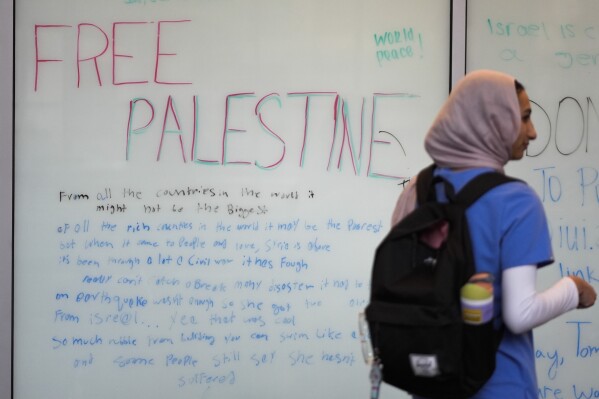 FREE
PALESTINE
world
peace!
From all the countries in the world it
might not be the Biggest
of all the rich countries in the world it may be the Poorest
but when it came to People and love, Siria is above
its been through a lot a Civil war it has Fough
can't
on earthquake wasn't enough so she got
From israel... yea that was cool
So much rubble From building you can swim Like a
and some People still say she hasn't
suffered
Israel is c
a gen
DON
To P
link
ay, Tom